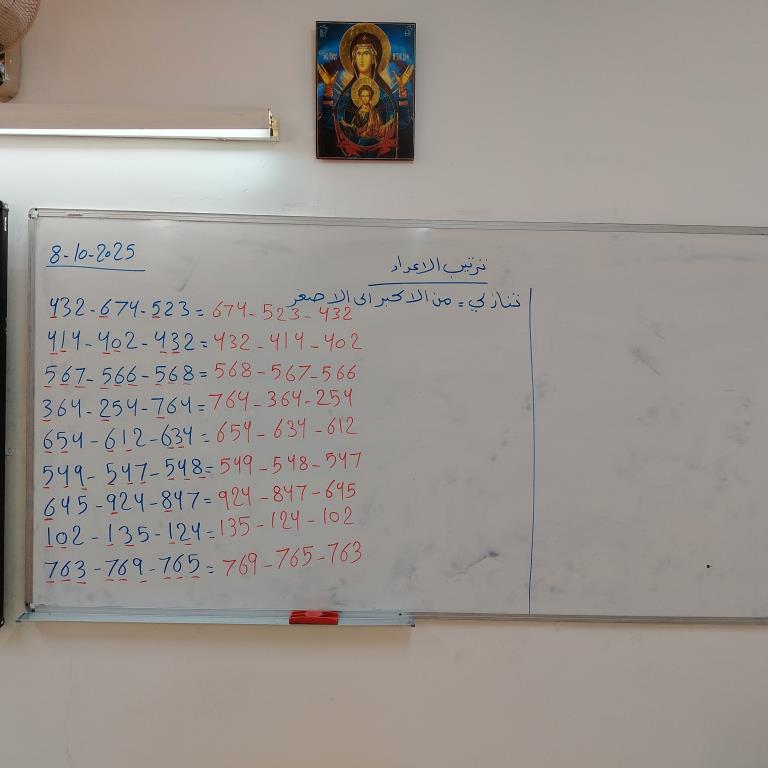 8-10-2025
ترتيب الاعداد
تنازلي = من الاكبر الى الاصغر
432-674-523= 674-523-432
414-402-432= 432-414-402
567-566-568= 568-567-566
364-254-764= 764-364-254
654-612-634= 654-634-612
549-547-548= 549-548-547
645-924-847= 924-847-645
102-135-124= 135-124-102
763-769-765= 769-765-763